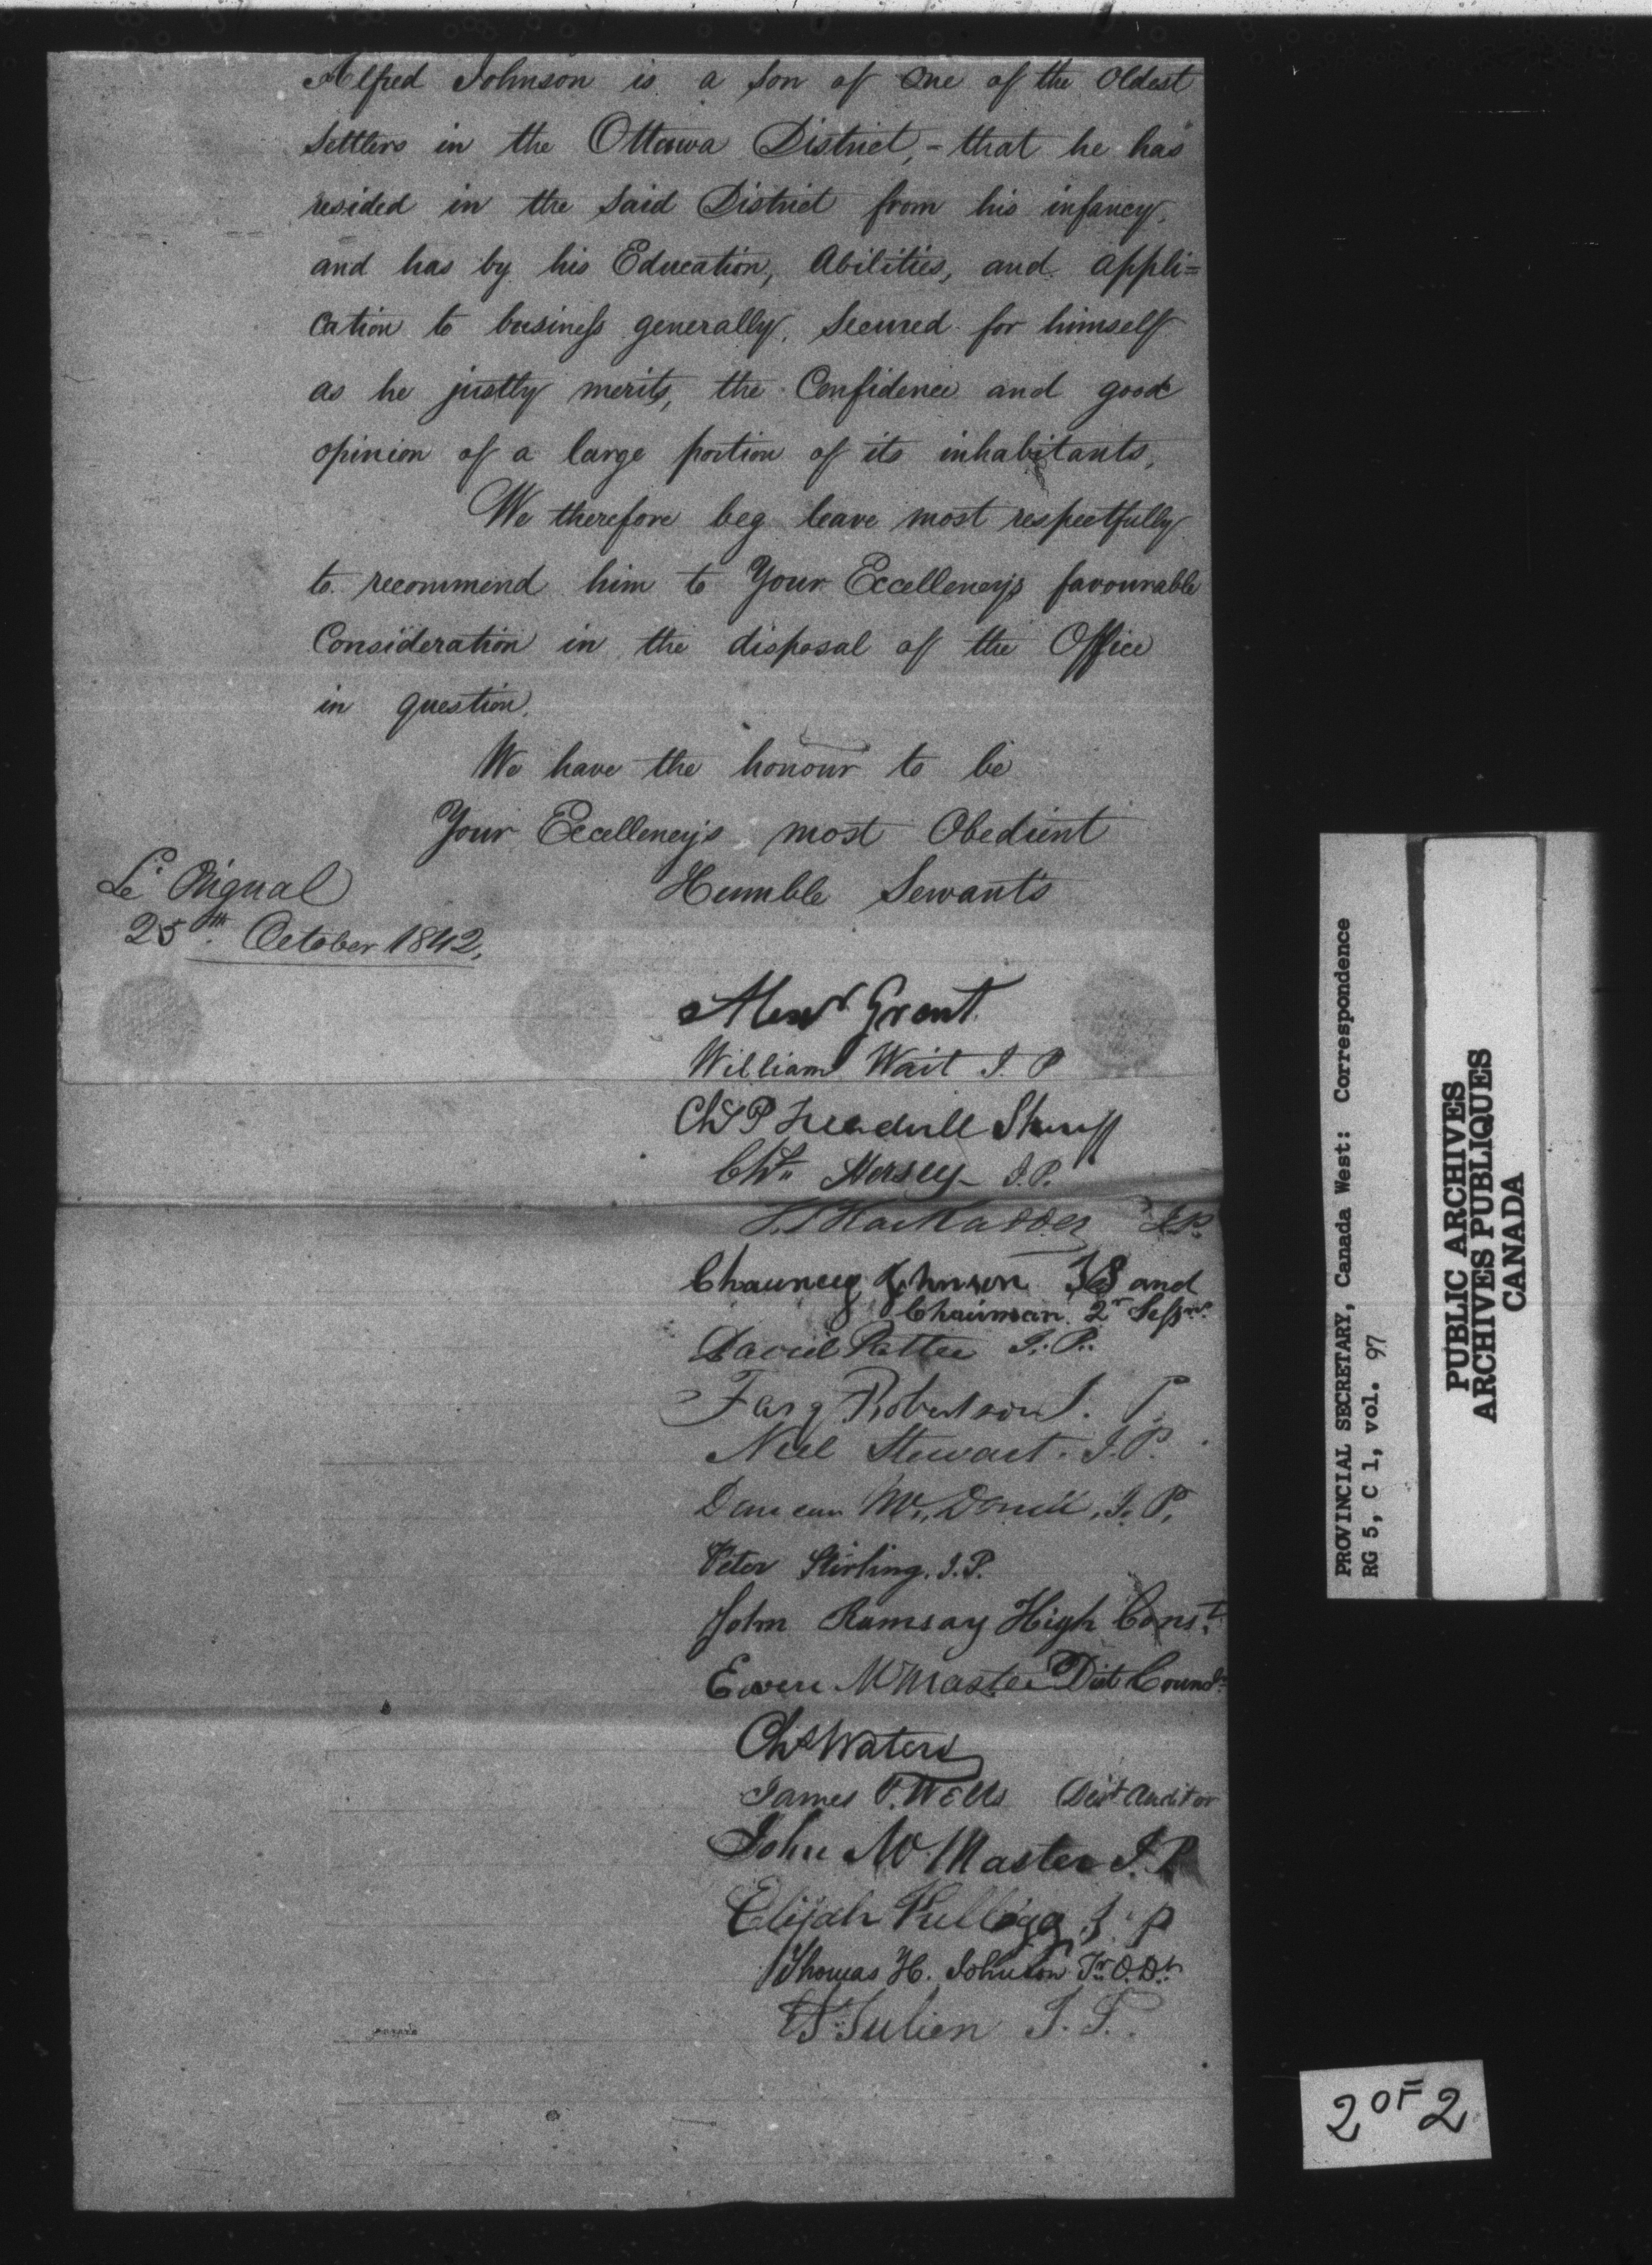 Alfred Johnson is a son of One of the Oldest
Settlers in the Ottawa District, - that he has
resided in the said District from his infancy,
and has by his Education, Abilities, and appli=
cation to business generally, Secured for himself
as he justly merits, the Confidence and good
opinion of a large portion of its inhabitants,
We therefore beg leave most respectfully
to recommend him to Your Excellency's favourable
Consideration in the disposal of the Office
in question.
We have the honour to be
Your Excellency's most Obedient
Humble Servants
Le Orignal
25th October 1842,
Alexr Grant
William Wait J. P
Chs P Treadwell Sheriff
Chs Hersey J.P.
J.P.
Chauncey Johnson JP and
Chairman 2r Sessns
David Pattee J.P.
Farq Robertson J. P.
Neil Stewart. J.P.
Duncan McDonell, J. P.
Peter Stirling. J.P.
John Ramsay High Const.
Ewen McMaster Dist Counsr
Chs Waters
James P. Wells Dist Auditor
John McMaster J.P
Elijah Kellogg J. P
Thomas H. Johnson Tr O. Dt
St Julien J. P.
PROVINCIAL SECRETARY, Canada West: Correspondence
RG 5, C 1, vol. 97
PUBLIC ARCHIVES
ARCHIVES PUBLIQUES
CANADA
2 OF 2